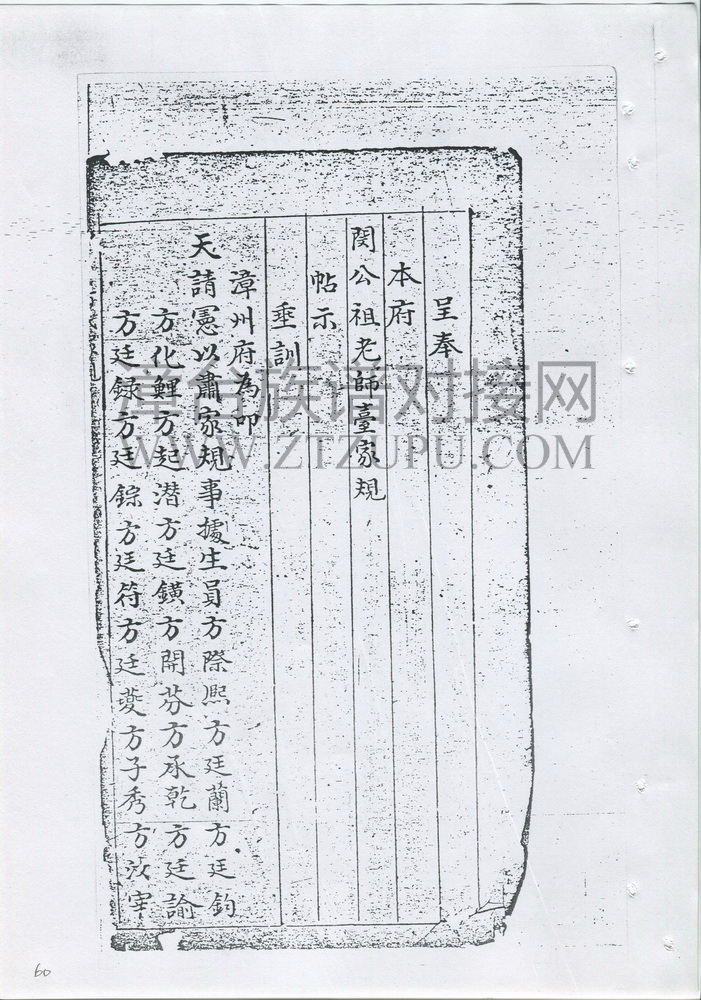 呈奉
本府
閔公祖老師臺家規
帖示
垂訓
漳州府為叩
天請憲以肅家規事據生員方際熙方廷蘭方廷鈞
方化鯉方起潛方廷鐄方開芬方承乾方廷諭
方廷錄方廷錝方廷符方廷夔方子秀方汝宰
漳台族谱对接网
WWW.ZTZUPU.COM
60